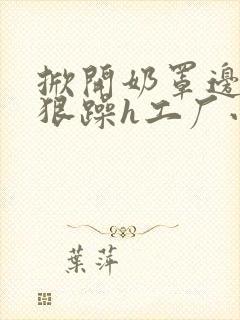 掀開奶罩邊
狠躁h工厂
葉萍